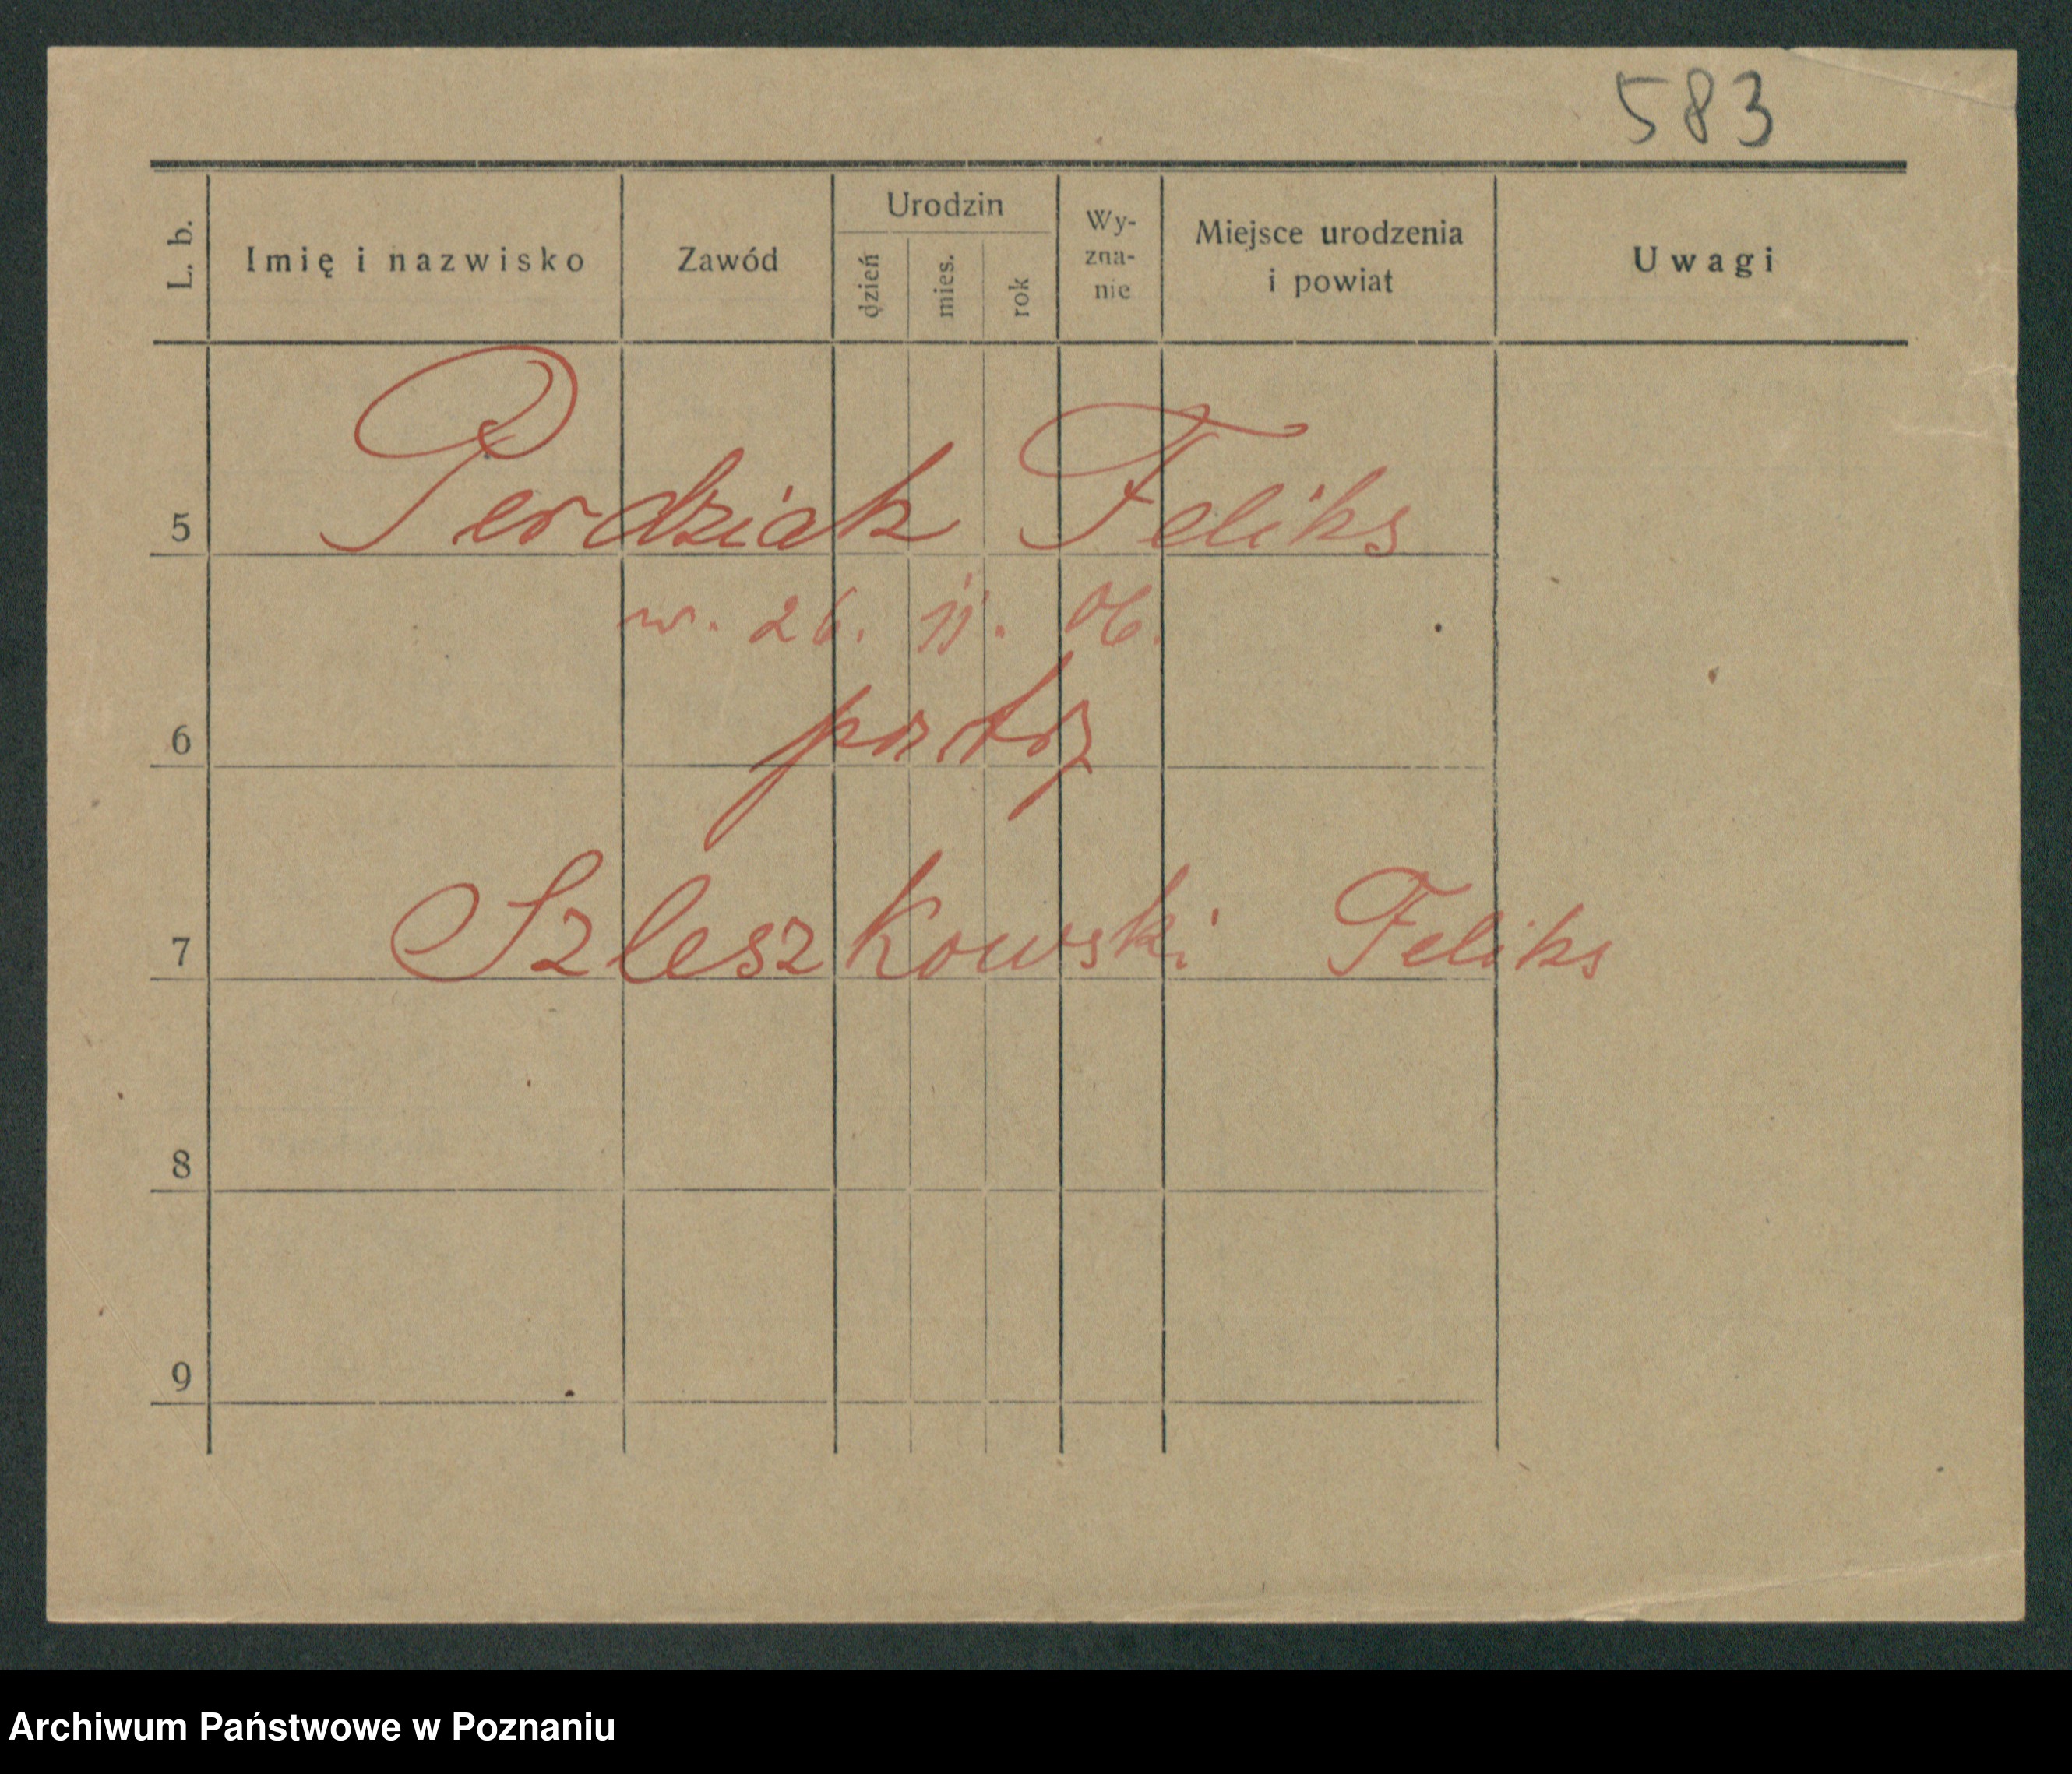 583
L. b. Imię i nazwisko Zawód Urodzin dzień mies. rok Wy-zna-nie Miejsce urodzenia i powiat Uwagi
5 Perdziak Feliks
26. 11. 06.
6
7 Szleszkowski Feliks
8
9
Archiwum Państwowe w Poznaniu